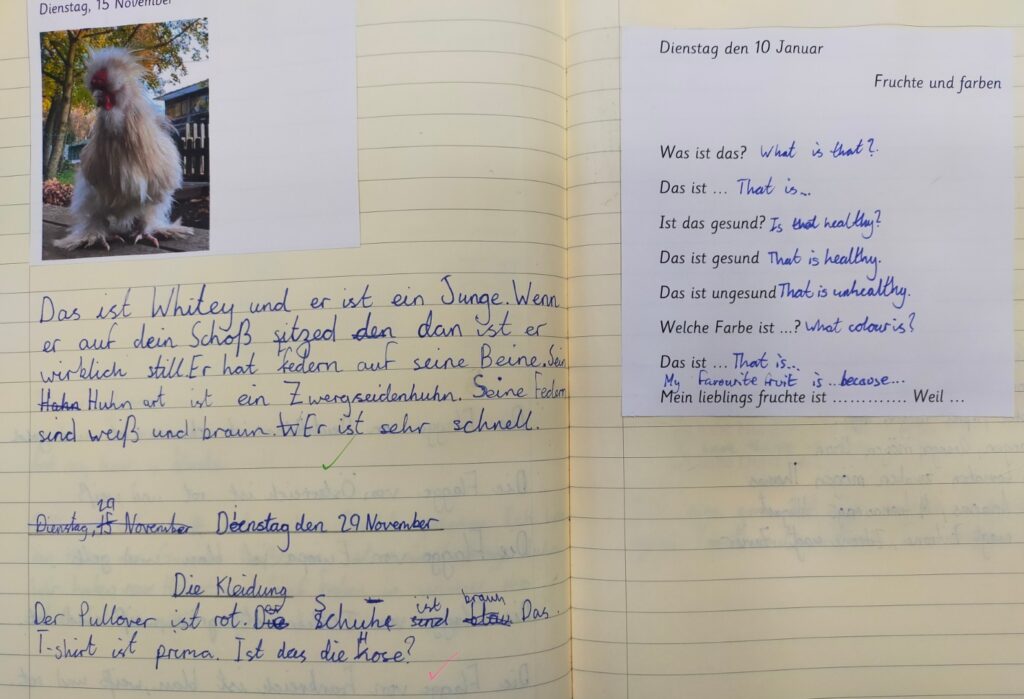 Dienstag, 15 November
Das ist Whitey und er ist ein Junge. Wenn
er auf dein Schoß sitzed den dan ist er
wirklich still. Er hat federn auf seine Beine. Sein
Hahn Huhn art ist ein Zwergseidenhuhn. Seine Federn
sind weiß und braun. Er ist sehr schnell.
29
Dienstag, 15 November Deenstag den 29 November
Die Kleidung
er ist braun
Der Pullover ist rot. Die Schuhe sind blau Das
T-shirt ist prima. Ist das die Hose?
Dienstag den 10 Januar
Fruchte und farben
Was ist das? What is that?
Das ist ... That is...
Ist das gesund? Is that healthy?
Das ist gesund That is healthy.
Das ist ungesund That is unhealthy.
Welche Farbe ist ...? What colour is?
Das ist ... That is...
My favourite fruit is ...because...
Mein lieblings fruchte ist ............. Weil ...